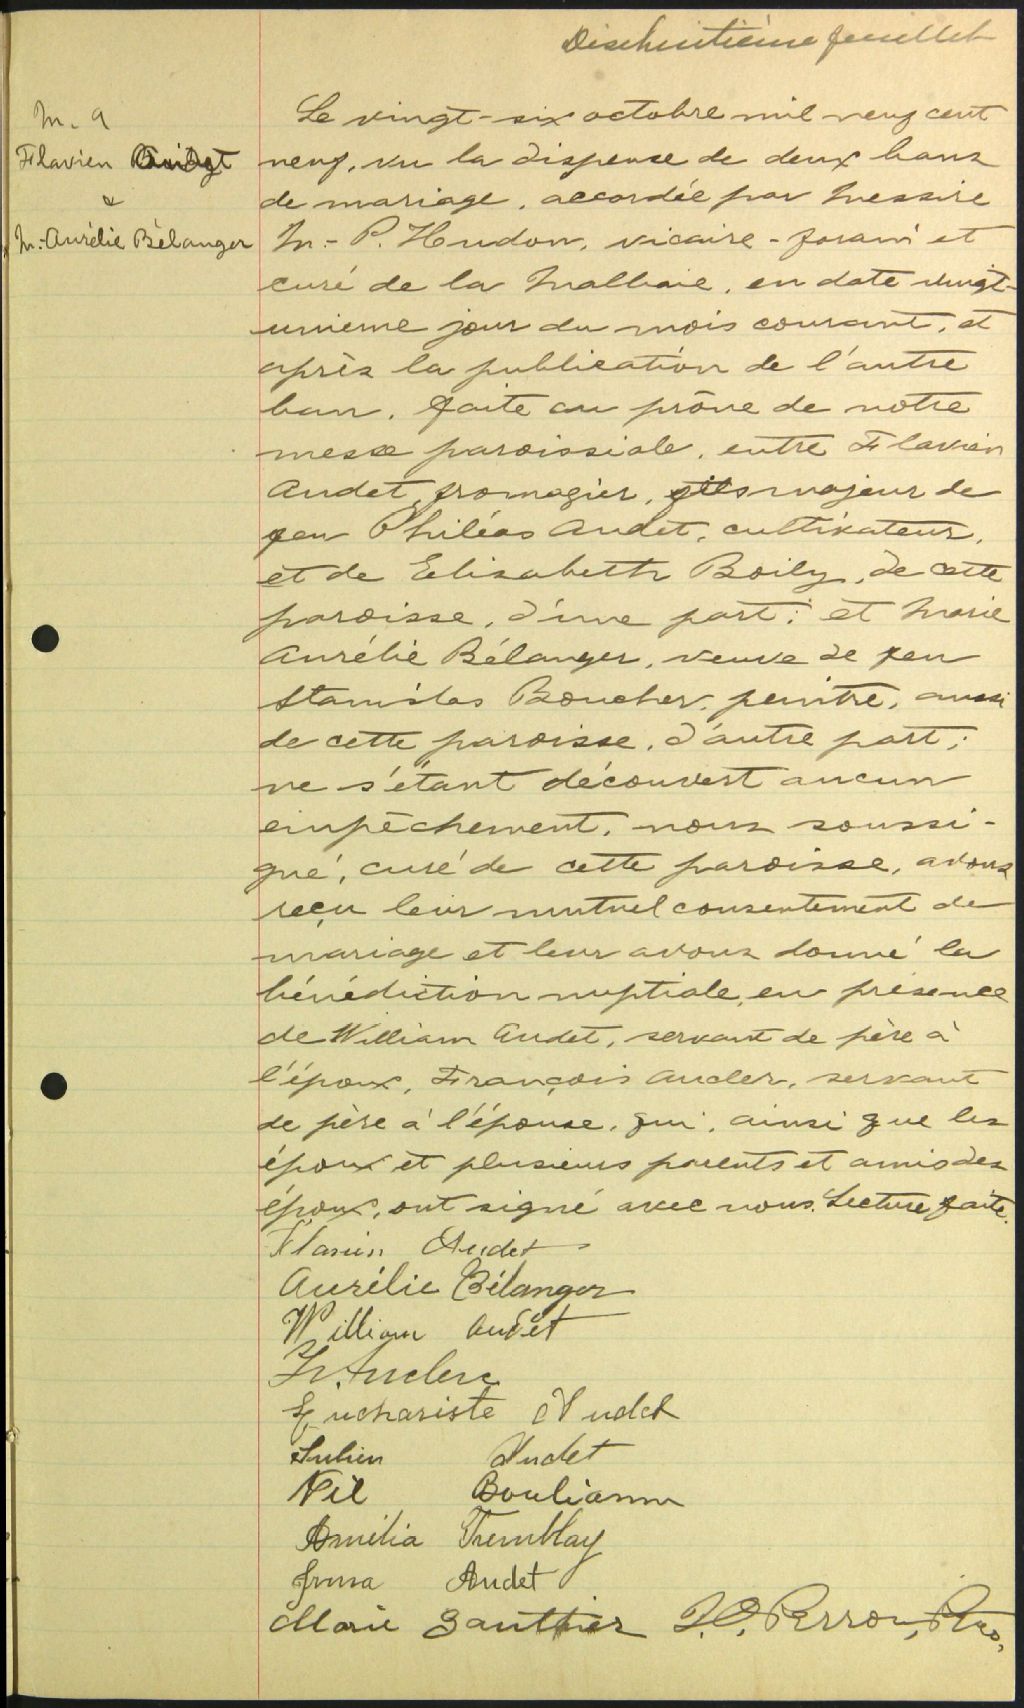 Dixhuitième feuillet
M. 9
Flavien Audet
&
M.-Aurélie Bélanger
Le vingt-six octobre mil neuf cent
neuf, vu la dispense de deux bans
de mariage, accordée par Messire
M.-P. Hudon, vicaire-forain et
curé de la Malbaie, en date vingt-
unième jour du mois courant, et
après la publication de l'autre
ban, faite au prône de notre
messe paroissiale, entre Flavien
Audet, fromagier, fils majeur de
feu Philéas Audet, cultivateur,
et de Elisabeth Boily, de cette
paroisse, d'une part; et Marie
Aurélie Bélanger, veuve de feu
Stanislas Boucher, peintre, aussi
de cette paroisse, d'autre part;
ne s'étant découvert aucun
empêchement, nous soussi-
gné, curé de cette paroisse, avons
reçu leur mutuel consentement de
mariage et leur avons donné la
bénédiction nuptiale, en présence
de William Audet, servant de père à
l'époux, François Aucler, servant
de père à l'épouse, qui, ainsi que les
époux et plusieurs parents et amis des
époux, ont signé avec nous. Lecture faite.
Flavien Audet
Aurélie Bélanger
William Audet
Fr. Auclerc
Euchariste Audet
Audet
Nil Boulianne
Amélia Tremblay
Audet
Marie Gauthier J.O. Perron, Ptre,